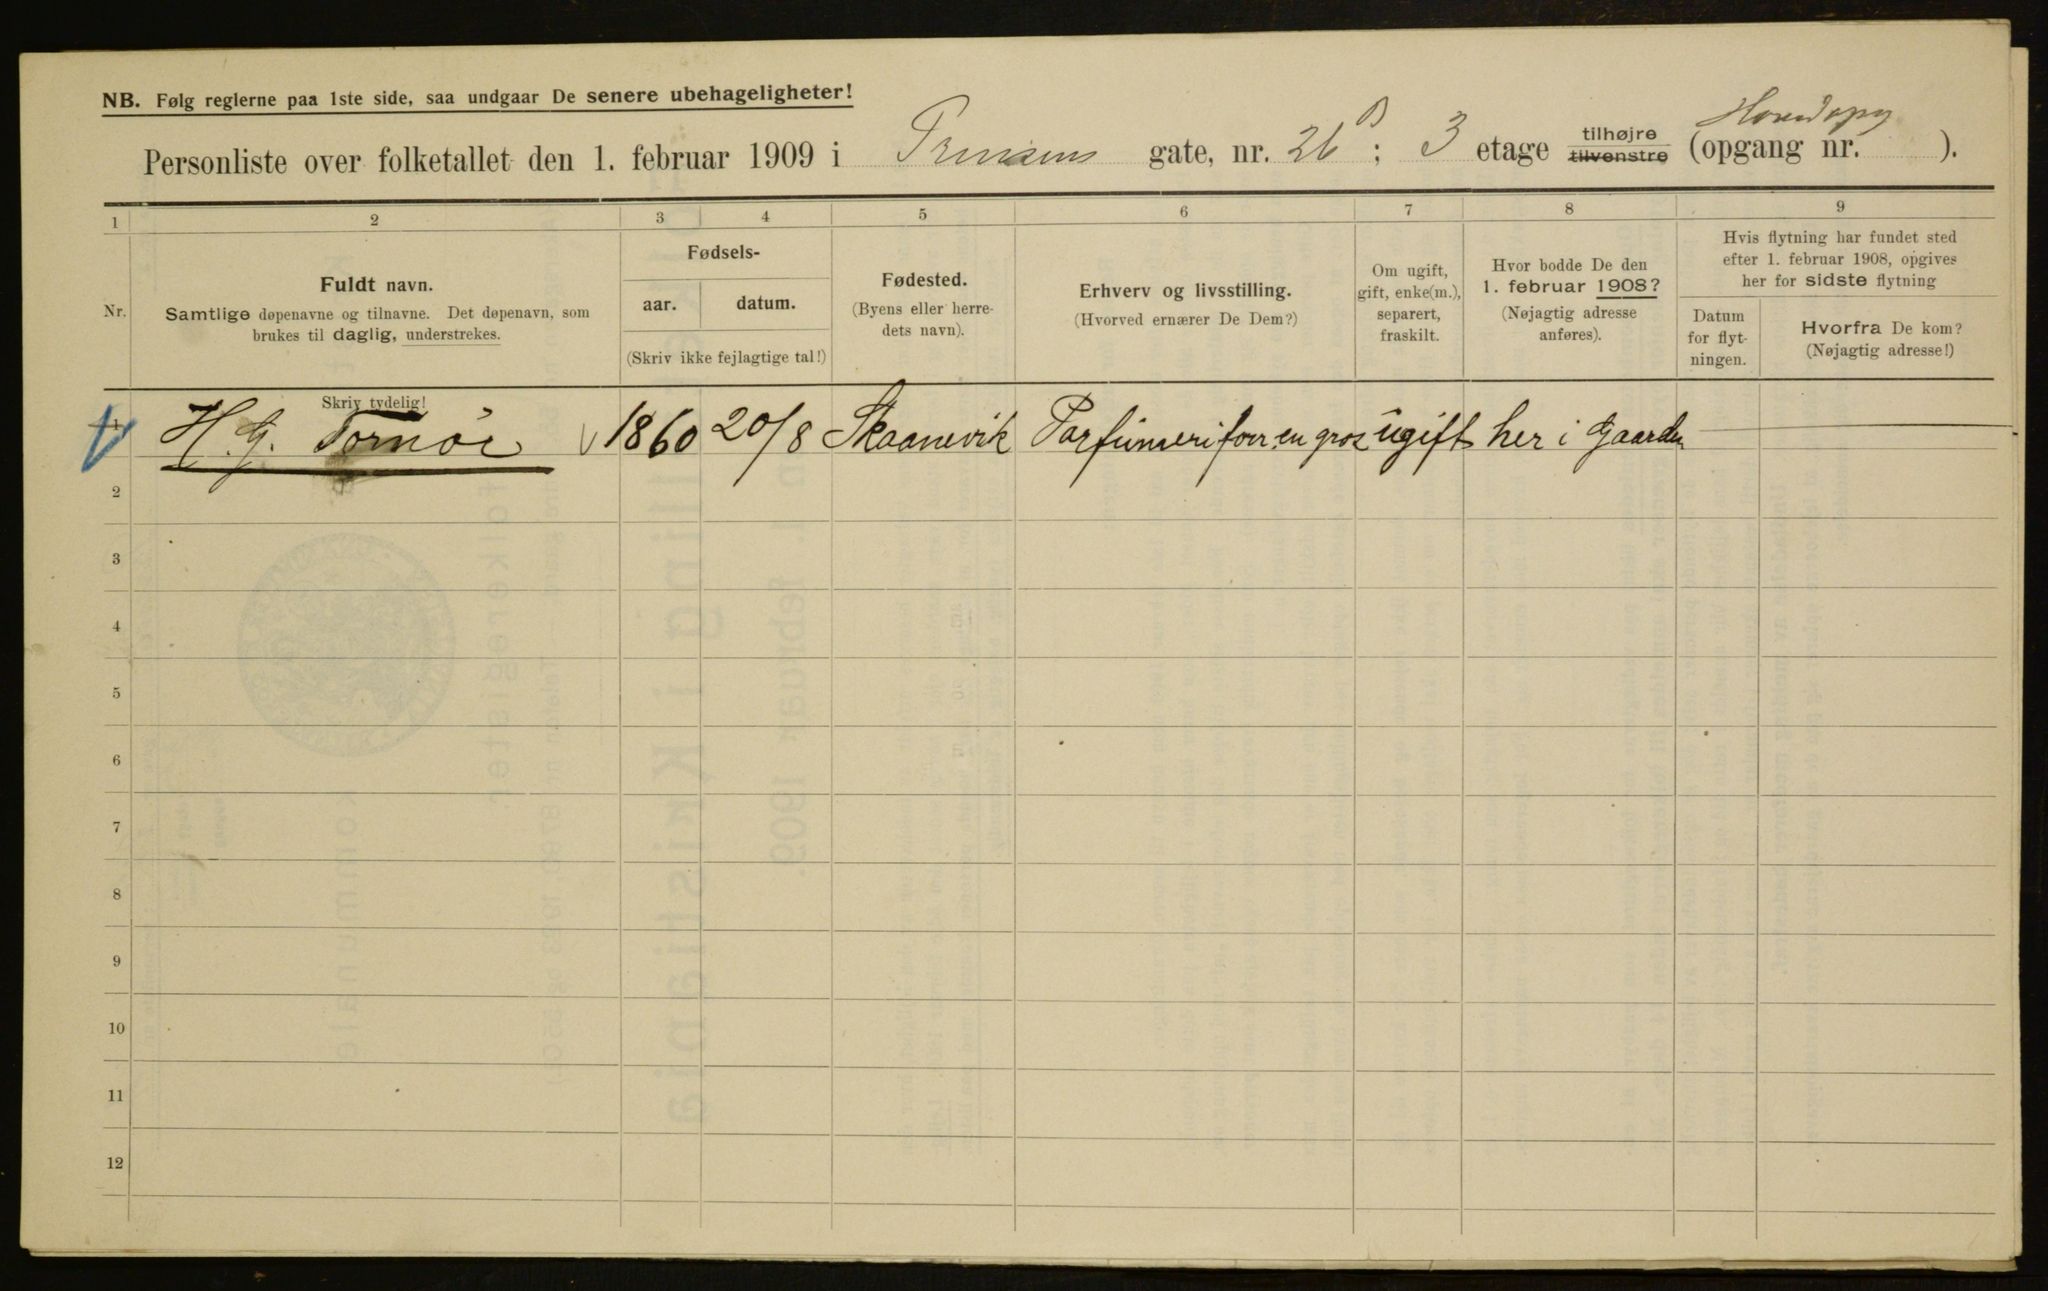 NB. Følg reglerne paa 1ste side, saa undgaar De senere ubehageligheter!
Personliste over folketallet den 1. februar 1909 i Prinsens gate, nr. 26 B; 3 etage tilhøjre tilvenstre (opgang nr. Hovedopg ).
1 2 3 4 5 6 7 8 9
Nr.
Fuldt navn.
Samtlige døpenavne og tilnavne. Det døpenavn, som
brukes til daglig, understrekes.
Fødsels-
aar. datum.
(Skriv ikke fejlagtige tal!)
Fødested.
(Byens eller herre-
dets navn).
Erhverv og livsstilling.
(Hvorved ernærer De Dem?)
Om ugift,
gift, enke(m.),
separert,
fraskilt.
Hvor bodde De den
1. februar 1908?
(Nøjagtig adresse
anføres).
Hvis flytning har fundet sted
efter 1. februar 1908, opgives
her for sidste flytning
Datum
for flyt-
ningen.
Hvorfra De kom?
(Nøjagtig adresse!)
Skriv tydelig!
1 H. G. Tornöe 1860 20/8 Skaanevik Parfumeriforr. en gros ugift her i Gaarden
2
3
4
5
6
7
8
9
10
11
12